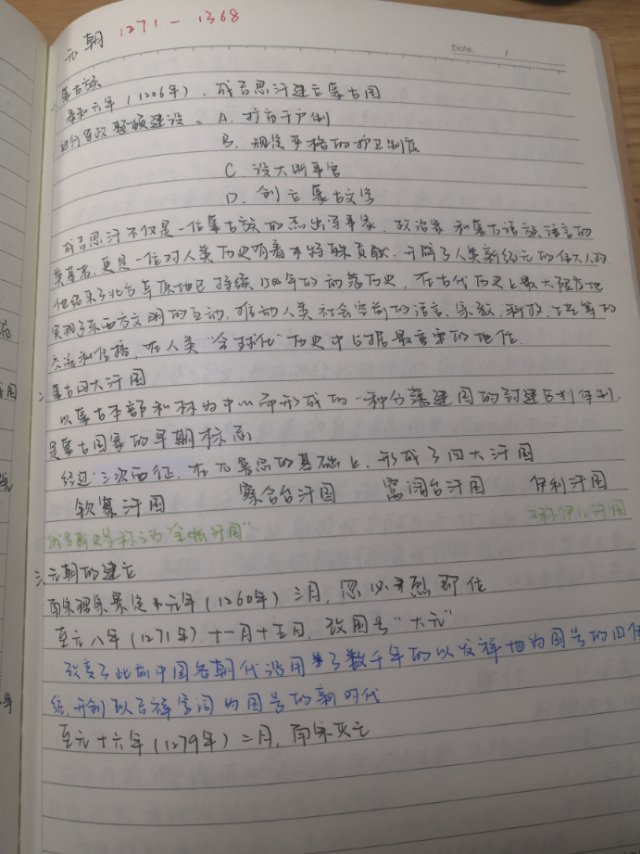 元朝 1271-1368
Date. 1
一、蒙古族
泰和六年（1206年），成吉思汗建立蒙古国
进行军政整顿建设：A. 扩充千户制
B. 规定严格的护卫制度
C. 设大断事官
D. 创立蒙古文字
成吉思汗不仅是一位蒙古族的杰出军事家、政治家和蒙古语族语言的
奠基者，更是一位对人类历史有着特殊贡献、开辟了人类新纪元的伟大人物
他结束了北方草原地区持续1500年的部落历史，在古代历史上最大程度地
实现了东西方文明的互动，推动人类社会空前的语言、宗教、科技、工艺等的
交流和传播，在人类"全球化"历史中占据最重要的地位.
二、蒙古四大汗国
以蒙古本部和林为中心而形成的一种分藩建国的封建占制体制.
是蒙古国家的早期标志
经过三次西征，在兀鲁思的基础上，形成了四大汗国
钦察汗国 察合台汗国 窝阔台汗国 伊利汗国
俄罗斯史学称之为"金帐汗国" 又称伊儿汗国
三、元朝的建立
南宋理宗景定元年（1260年）三月，忽必烈即位
至元八年（1271年）十一月十五日，改国号"大元"
改变了此前中国各朝代沿用了数千年的以发祥地为国号的旧传
统，开创以吉祥字词为国号的新时代
至元十六年（1279年）二月，南宋灭亡